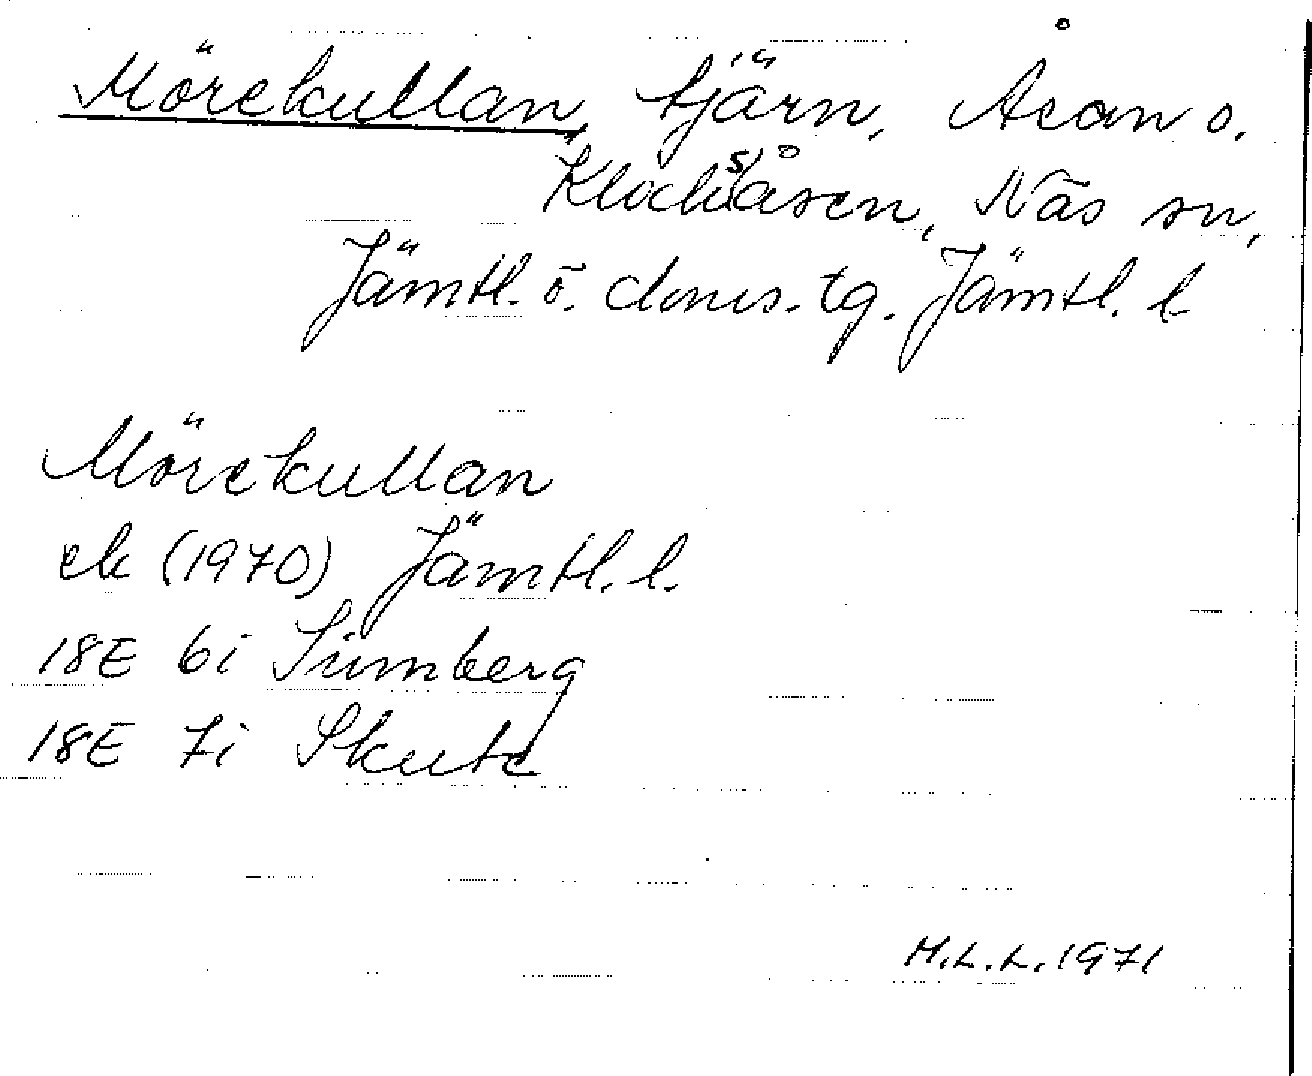 Mörekullan, tjärn, Åsan o.
Klocksåsen, Näs sn,
Jämtl. ö. doms. tg. Jämtl. l
Mörekullan
ek (1970) Jämtl. l.
18E 6i Sunnberg
18E 7i Skute
M.L.L. 1971